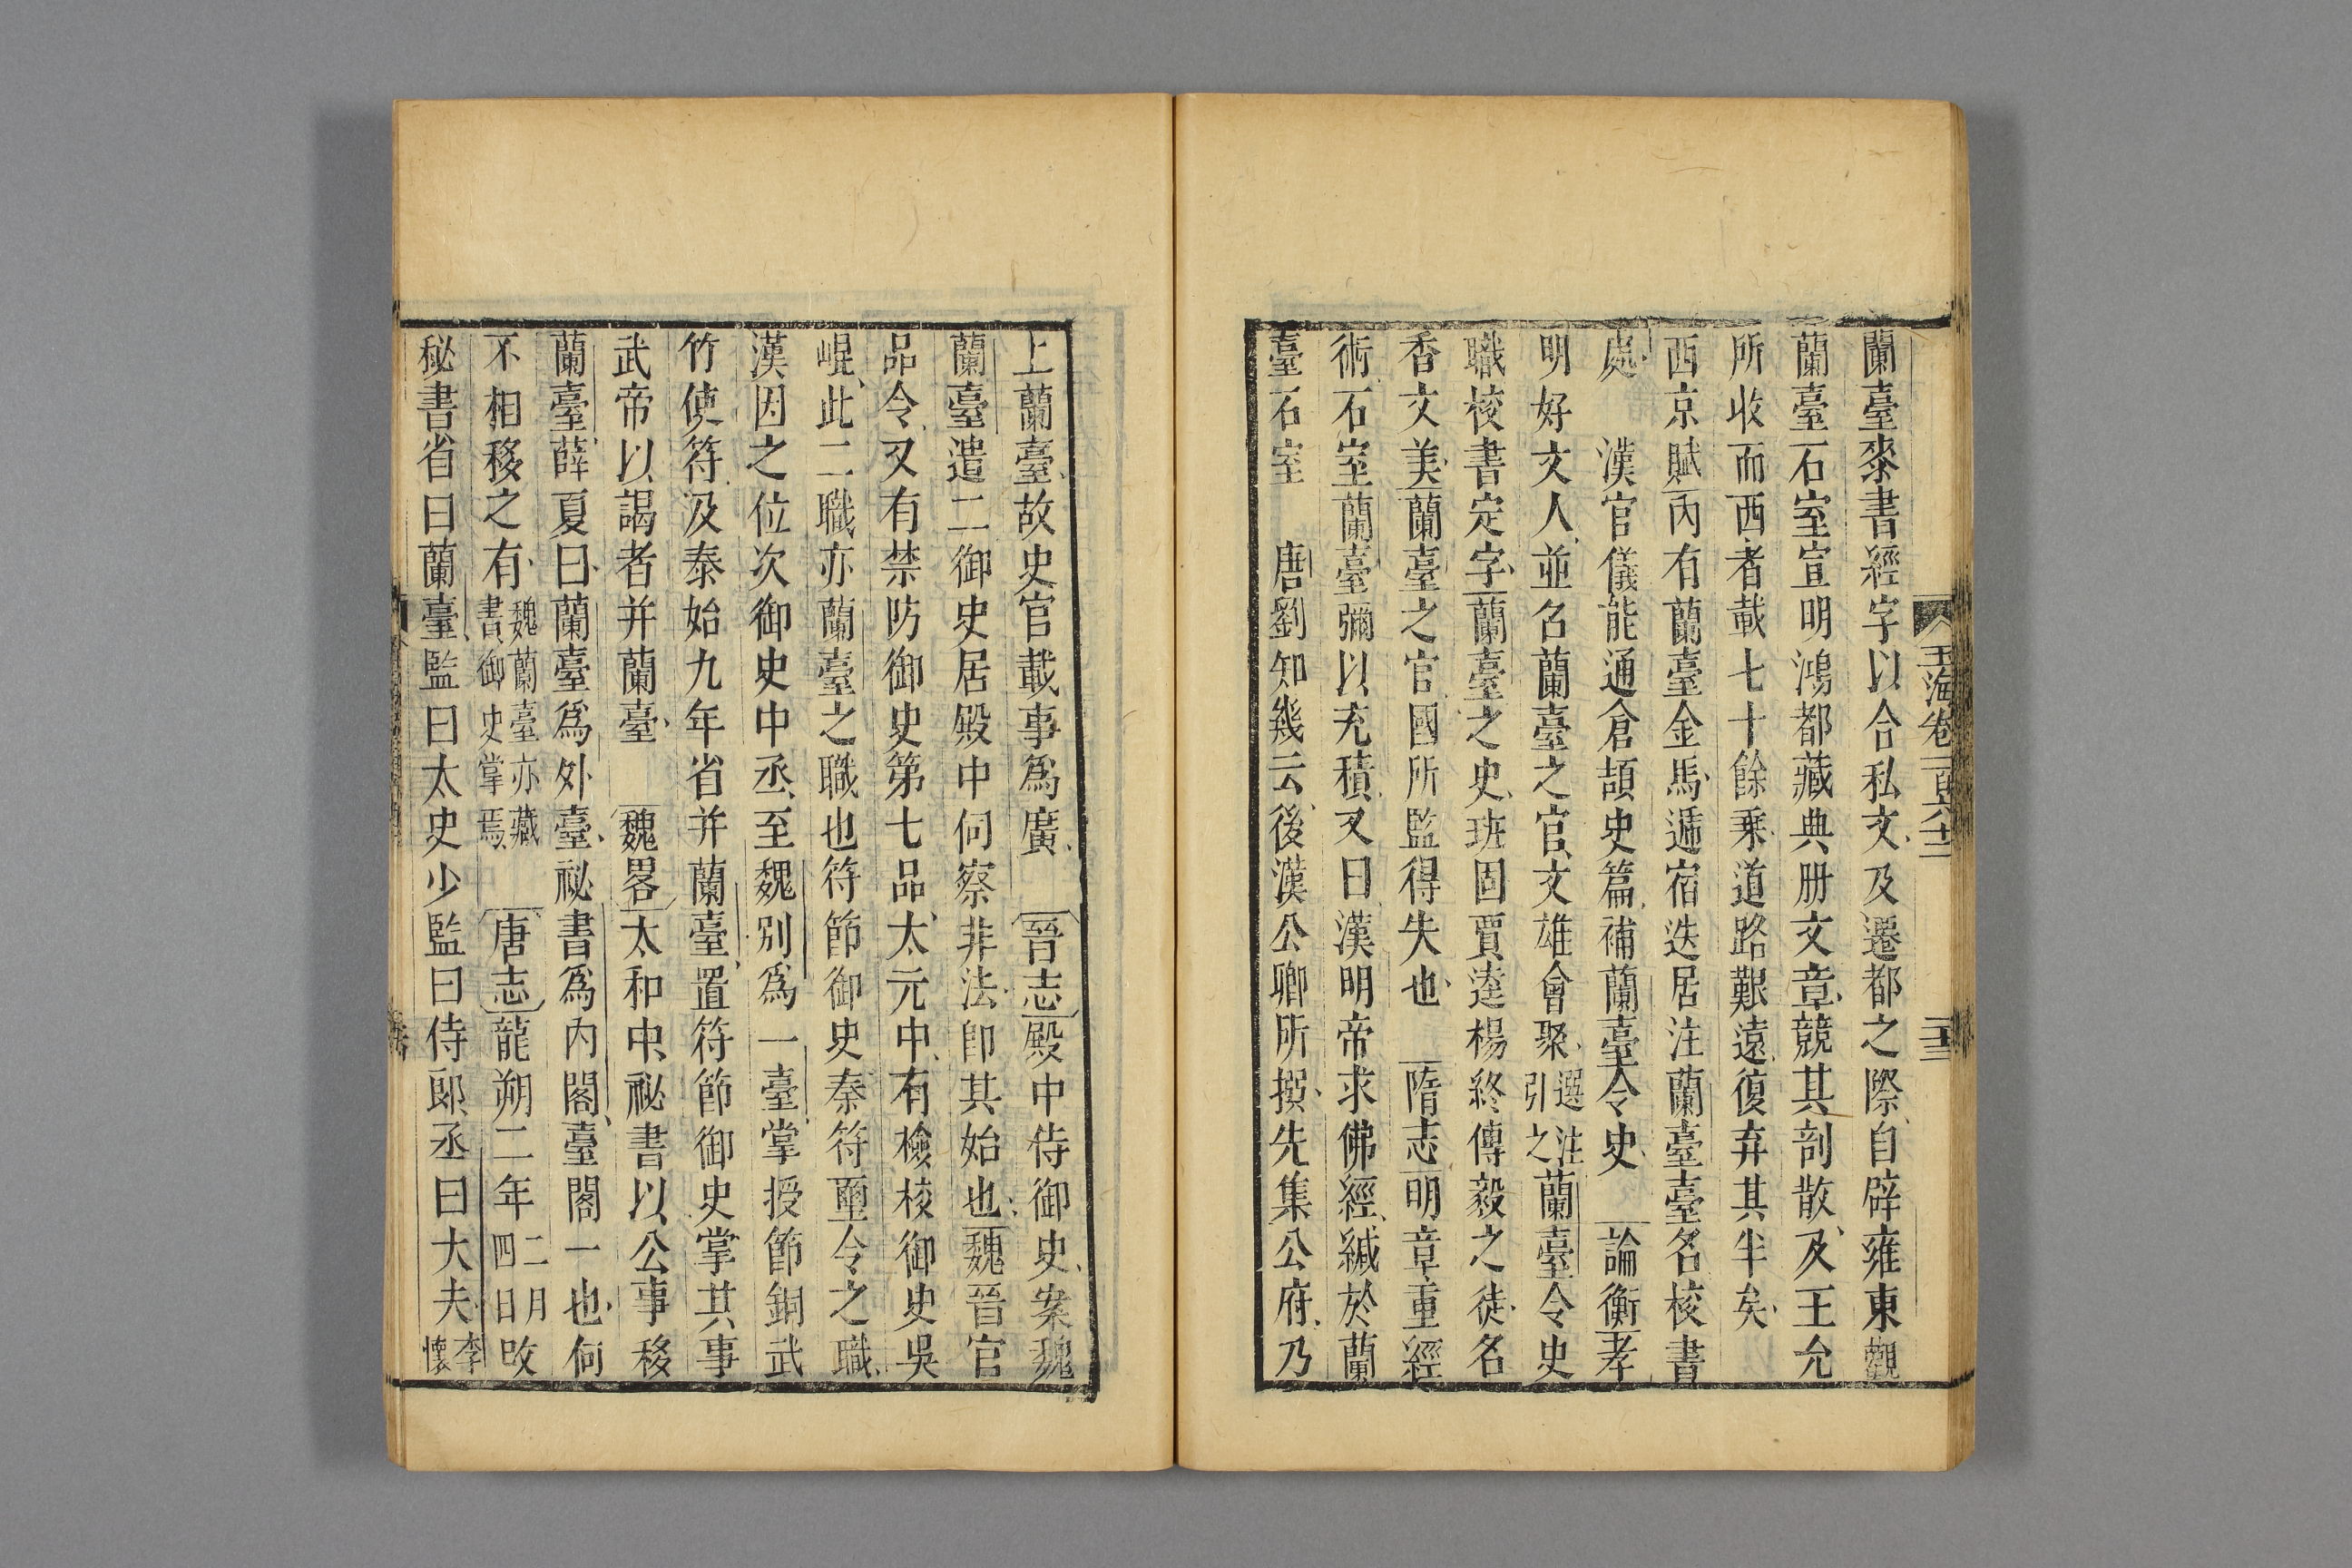 玉海卷一百六十三
蘭臺桼書經字以合私文及遷都之際自辟雍東觀
蘭臺石室宣明鴻都藏典册文章競其剖散及王允
所收而西者載七十餘乘道路艱遠復弃其半矣
西京賦內有蘭臺金馬遞宿迭居注蘭臺臺名校書
處　漢官儀能通倉頡史篇補蘭臺令史　論衡孝
明好文人並名蘭臺之官文雄會聚選注引之蘭臺令史
職校書定字蘭臺之史班固賈逵楊終傳毅之徒名
香文美蘭臺之官國所監得失也　隋志明章重經
術石室蘭臺彌以充積又曰漢明帝求佛經緘於蘭
臺石室　唐劉知幾云後漢公卿所撰先集公府乃
上蘭臺故史官載事爲廣　晉志殿中侍御史案魏
蘭臺遣二御史居殿中伺察非法卽其始也魏晉官
品令又有禁防御史第七品太元中有檢校御史吳
崐此二職亦蘭臺之職也符節御史秦符璽令之職
漢因之位次御史中丞至魏別爲一臺掌授節銅武
竹使符汲泰始九年省并蘭臺置符節御史掌其事
武帝以謁者并蘭臺　魏畧太和中秘書以公事移
蘭臺薛夏曰蘭臺爲外臺祕書爲內閣臺閣一也何
不相移之有魏蘭臺亦藏書御史掌焉　唐志龍朔二年二月四日改
秘書省曰蘭臺監曰太史少監曰侍郎丞曰大夫李懷